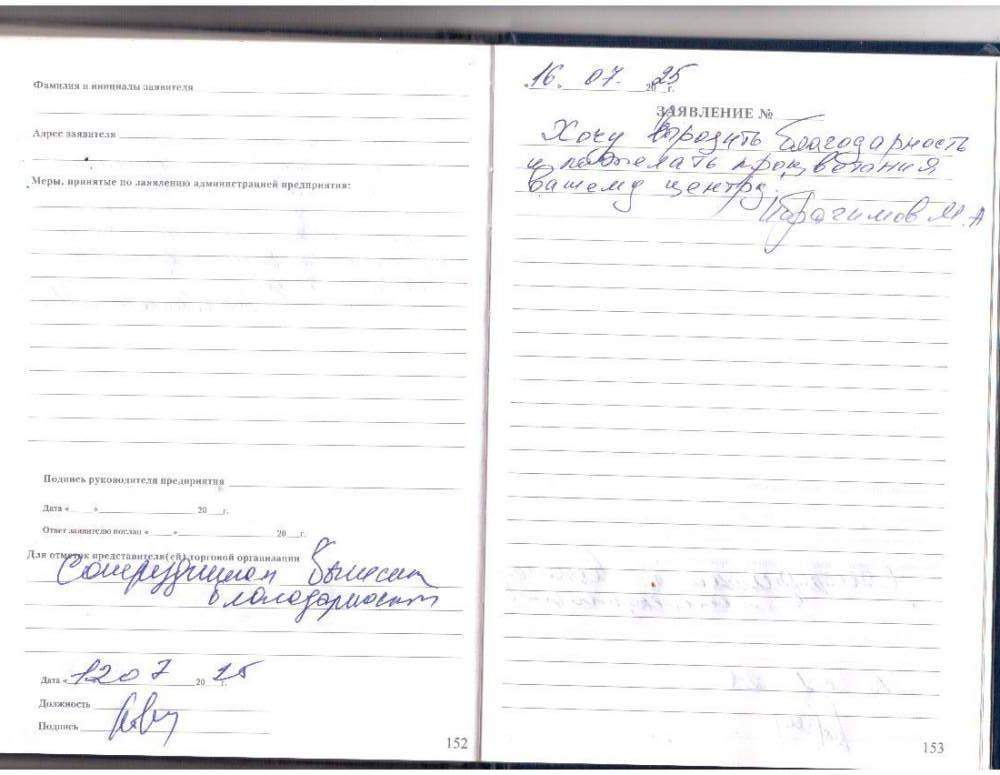 Фамилия и инициалы заявителя
Адрес заявителя
Меры, принятые по заявлению администрацией предприятия:
Подпись руководителя предприятия
Дата « » 20 г.
Ответ заявителю послан « » 20 г.
Для отметок представителя(ей) торговой организации
Сотрудникам вынесли
благодарность
Дата « 12 07 20 25 г.
Должность
Подпись
152
16. 07. 20 25 г.
ЗАЯВЛЕНИЕ №
Хочу выразить благодарность
и пожелать процветания
вашему центру.
Ибрагимов М.А
153